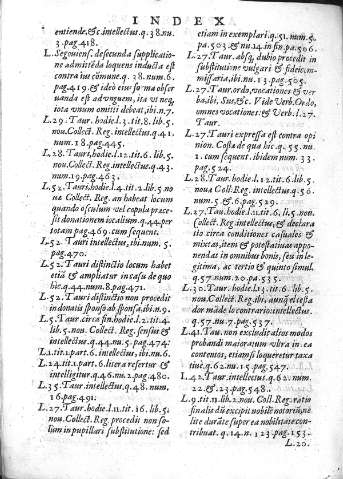 INDEX
entiende, &c. intellectus. q. 38. nu.
3. pag. 418.
L. Segoviens. de secunda supplicatio-
ne admitēda loquens indusita est
contra ius cōmune. q. 28. num. 6.
pag. 419 & ideo eius forma obser
uanda est ad vnguem, ita vt neq,
iota vnum omitti debeat, ibi n. 7.
L. 29. Taur. hodie l. 3. tit. 8. lib. 5.
nou. Collect. Reg. intellectus. q. 41.
num. 18. pag. 445.
L. 28. Taur. hodie l. 12. tit. 6. lib. 5.
nou. Collect. Reg. intellectus. q. 43.
num. 19. pag. 463.
L. 52. Tauri, hodie l. 4. tit. 2. lib. 5. no
ua Collect. Reg. an habeat locum
quando osculum vel copula præce-
sit donationem localium. q. 44. per
totam pag. 469. cum sequent.
L. 52. Tauri intellectus, ibi num. 5.
pag. 470.
L. 52. Tauri distinctio locum habet
etiā & ampliatur in casu de quo
hic. q. 44. num. 8. pag. 471.
L. 52. Tauri distinctio non procedit
in donatis sponso ab sponsa. ibi n. 9.
L. 5. Taur. circa fin. hodie l. 2. tit. 4.
lib. 5. nou. Collect. Reg. sensus &
intellectus. q. 44. nu. 5. pag. 474.
L. 1. tit. 1. part. 6. intellectus, ibi nu. 6.
L. 24. tit. 1. part. 6. litera refertur &
intelligitur. q. 46. nu. 2. pag. 480.
L. 35. Taur. intellectus. q. 48. num.
16. pag. 491.
L. 27. Taur. hodie l. 11. tit. 6. lib. 5.
nou. Collect. Reg. procedit non so-
lum in pupillari substitutione: sed
etiam in exemplari. q. 51. num. 5.
pa. 503. & nu. 14. in fin. pa. 506.
L. 27. Taur. absq; dubio procedit in
substitutione vulgari & fideicom-
missaria, ibi nu. 13. pag. 505.
L. 27. Taur. ordo, vocationes & ver
ba ibi, Sus, &c. Vide Verb. Ordo,
omnes vocationes: & Verb. l. 27.
Taur.
L. 27. Tauri expressa est contra opi
nion. Costa de qua hic. q. 55. nu.
1. cum sequent. ibidem num. 33.
pag. 524.
L. 28. Taur. hodie l. 12. tit. 6. lib. 5.
noua Coll. Reg. intellectus. q. 56.
num. 5. & 6. pag. 529.
L. 17. Tau. hodie l. 1. tit. 6. li. 5. nou.
Collect. Reg. intellectus, & declara
tio circa conditiones casuales &
mixtas, item & potestatiuas appo-
nendas in omnibus bonis, seu in le-
gitima, ac tertio & quinto simul.
q. 57. num. 20. pa. 535.
L. 30. Taur. hodie l. 13. tit. 6. lib. 5.
noua Collect. Reg. ibi,
dor māde lo contrario: intellectus.
q. 57. nu. 7. pag. 537.
L. 41. Tau. non excludit alios modos
probandi maioratum vltra in ea
contentos, etiam si loqueretur taxa
tiuè. q. 62. nu. 15. pag. 547.
L. 42. Taur. intellectus. q. 62. num.
22. & 23. pag. 548.
L. 9. tit. 11. lib. 2. nou. Coll. Reg. ratio
finalis dū excipit nobilē notorium, ne
lite durāte super ea nobilitate con-
tribuat. q. 14. n. 123. pag. 153.
L. 20.